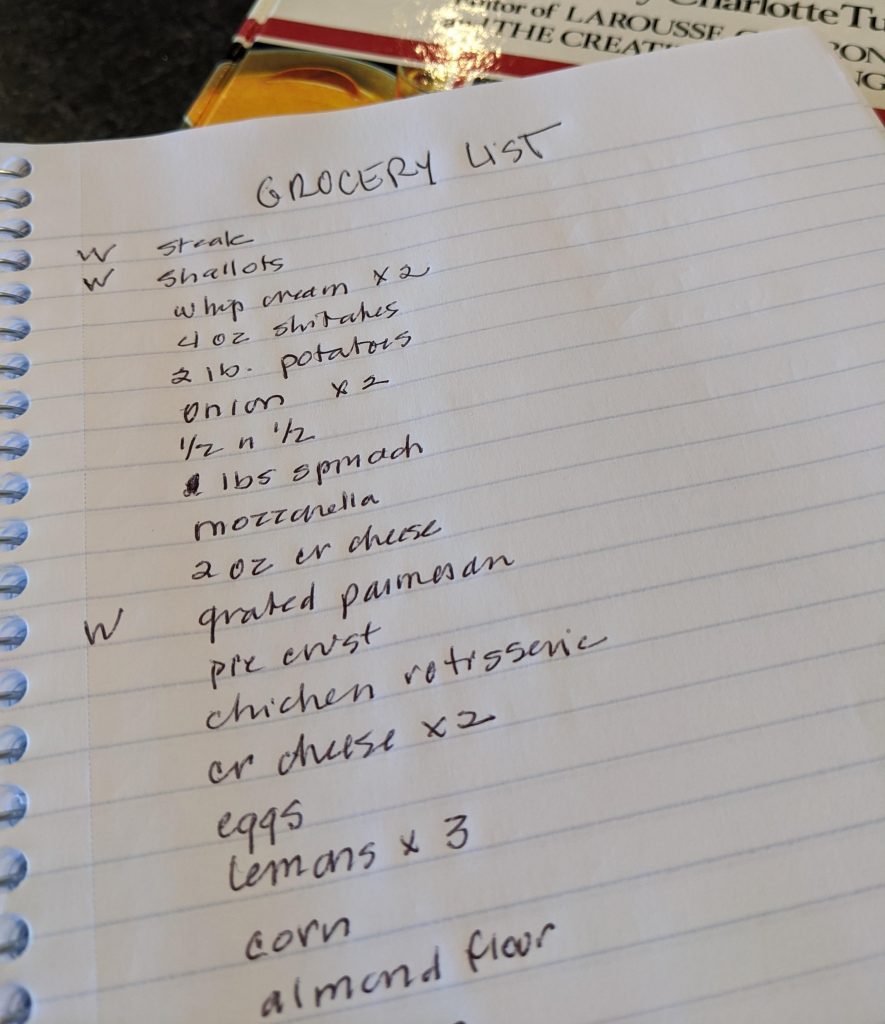 Charlotte Tu
itor of LAROUSSE
and THE CREAT
GROCERY LIST
W steak
W shallots
whip cream x 2
4 oz shitakes
2 lb. potatoes
onion x 2
1/2 n 1/2
lbs spinach
mozzarella
2 oz cr cheese
W grated parmesan
pie crust
chicken rotisserie
cr cheese x 2
eggs
lemons x 3
corn
almond flour